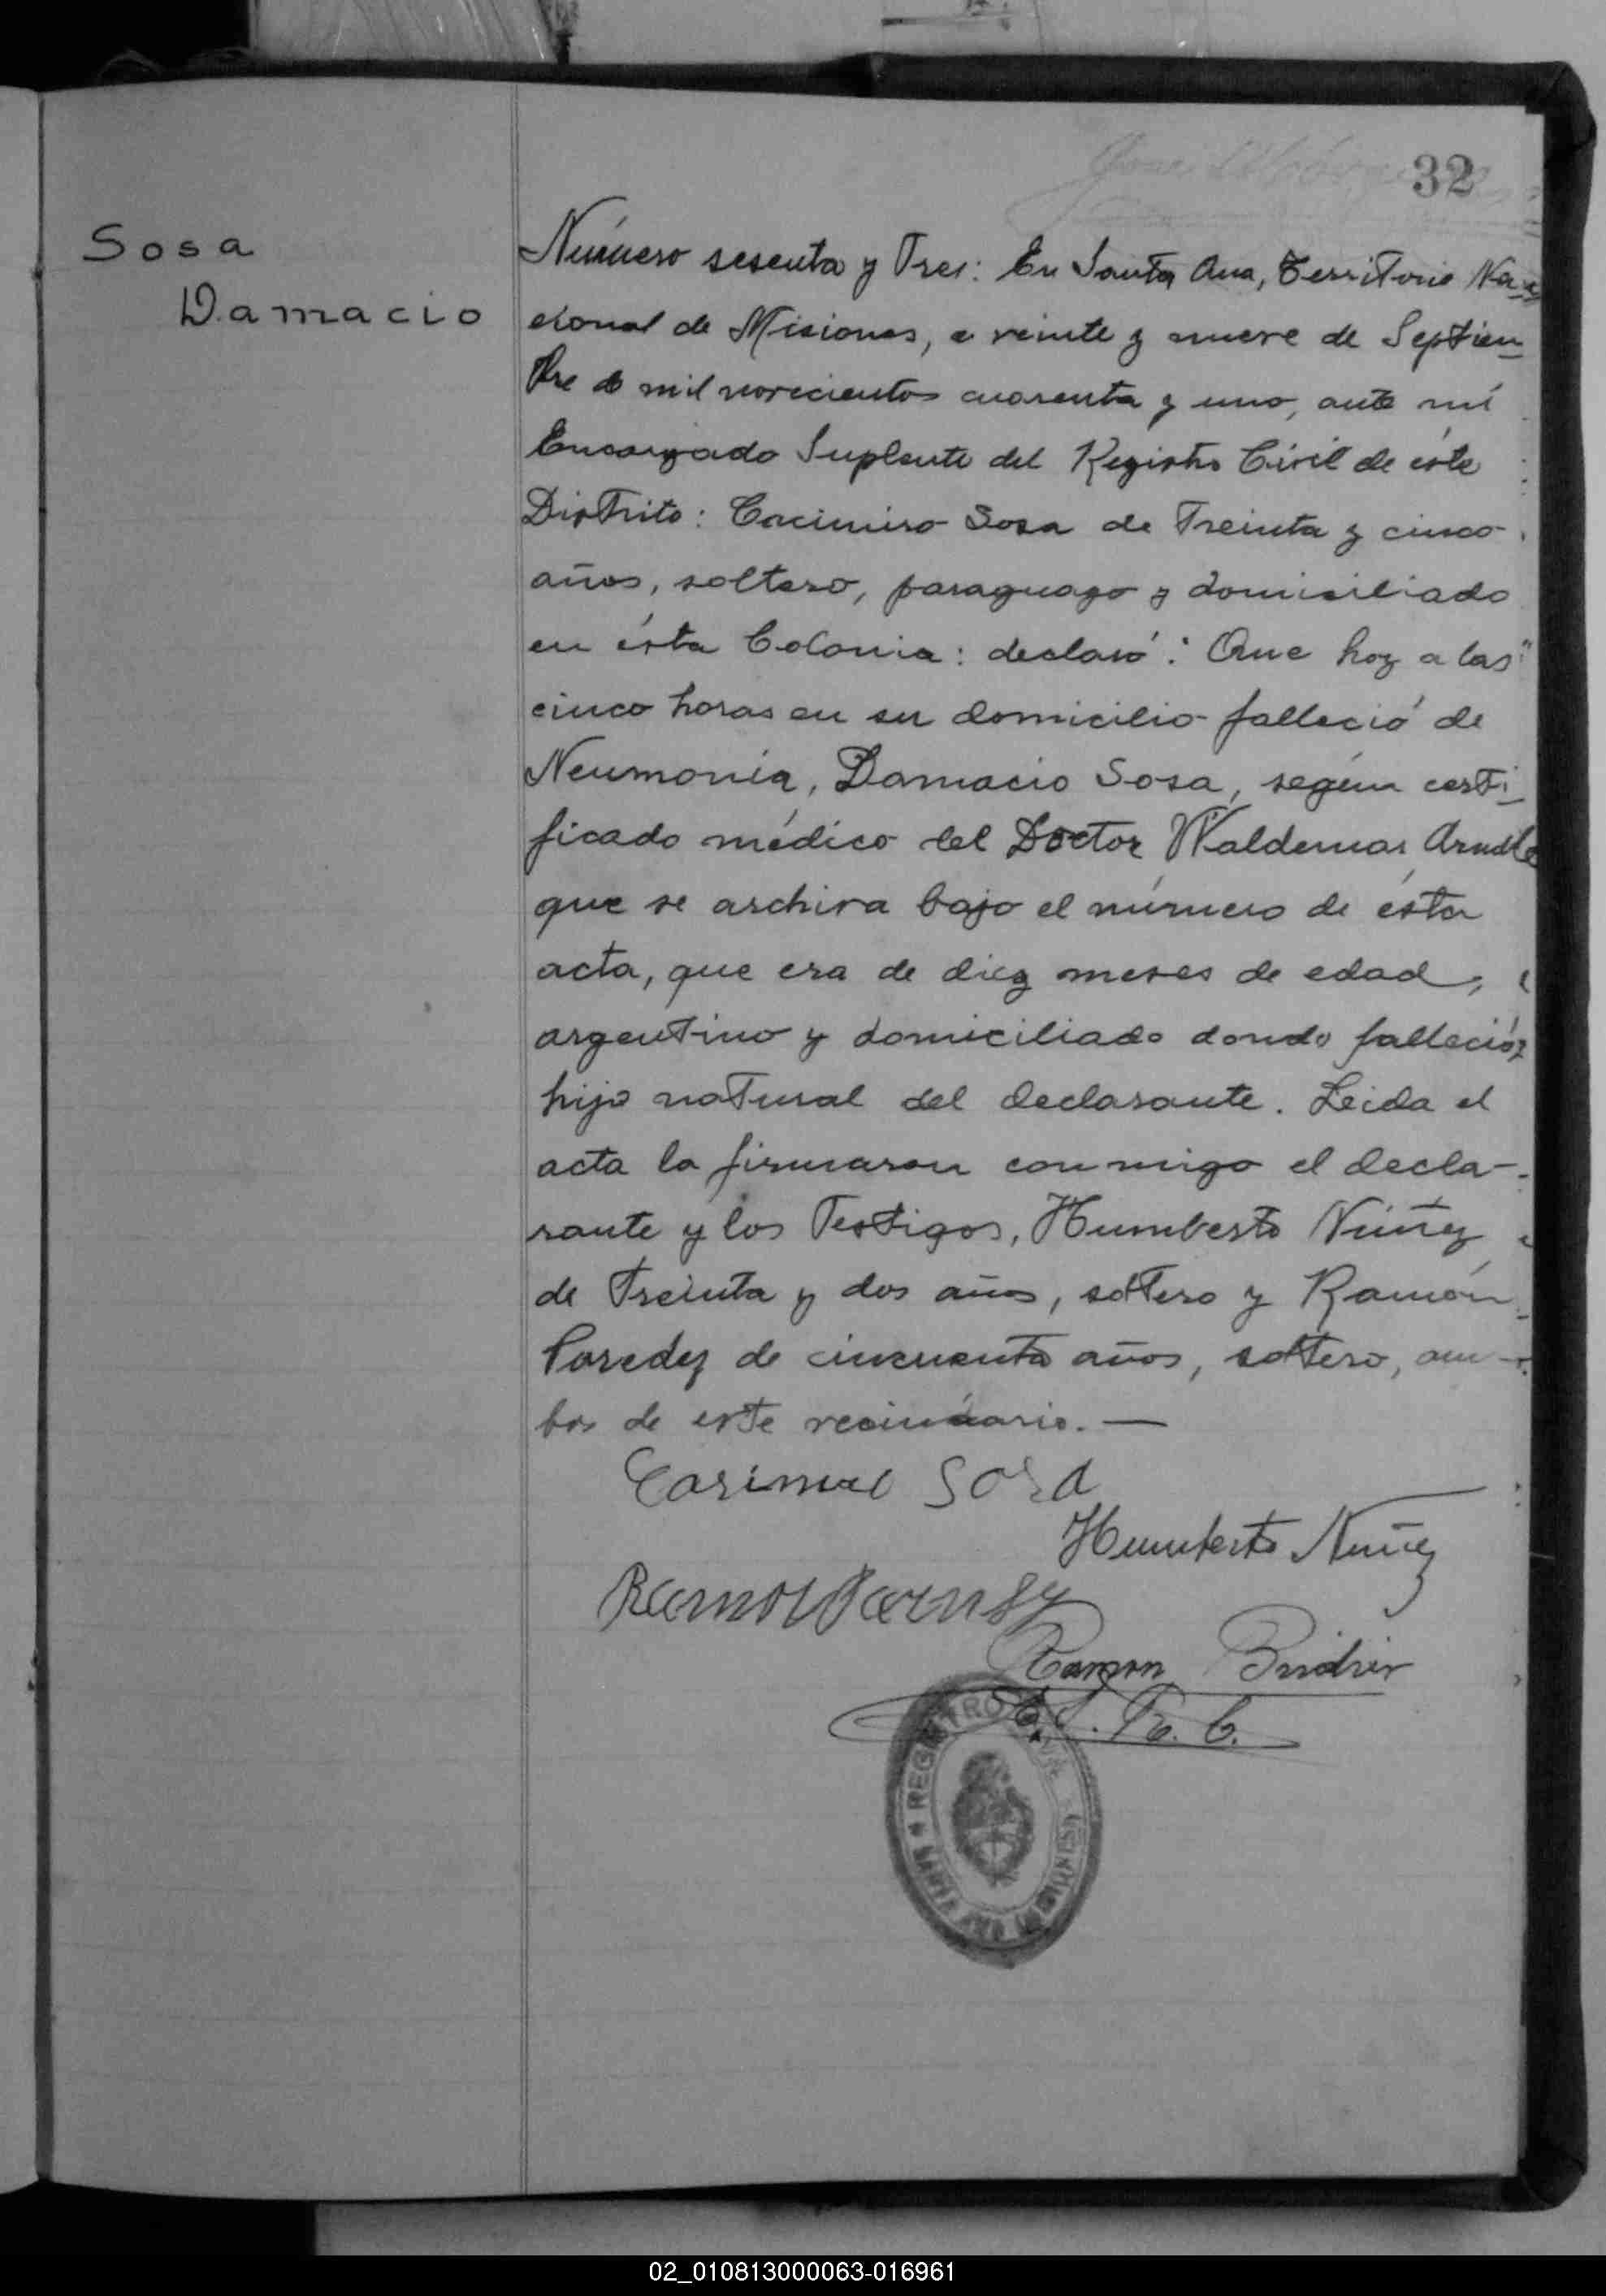 32
Sosa
Damacio
Número sesenta y Tres: En Santa Ana, Territorio Na-
cional de Misiones, a veinte y nueve de Septiem-
bre de mil novecientos cuarenta y uno, ante mí
Encargado Suplente del Registro Civil de éste
Distrito: Cacimiro Sosa de Treinta y cinco
años, soltero, paraguayo y domiciliado
en ésta Colonia: declaró: Que hoy a las
cinco horas en su domicilio falleció de
Neumonía, Damacio Sosa, según certi-
ficado médico del Doctor Waldemar
que se archiva bajo el número de ésta
acta, que era de diez meses de edad,
argentino y domiciliado donde falleció,
hijo natural del declarante. Leida el
acta la firmaron conmigo el decla-
rante y los Testigos, Humberto Núñez
de Treinta y dos años, soltero y Ramón
Paredez de cincuenta años, soltero, am-
bos de este vecindario. —
Sosa
Humberto Nuñez
Ramon
E. S. R. C.
REGISTRO
02_010813000063-016961